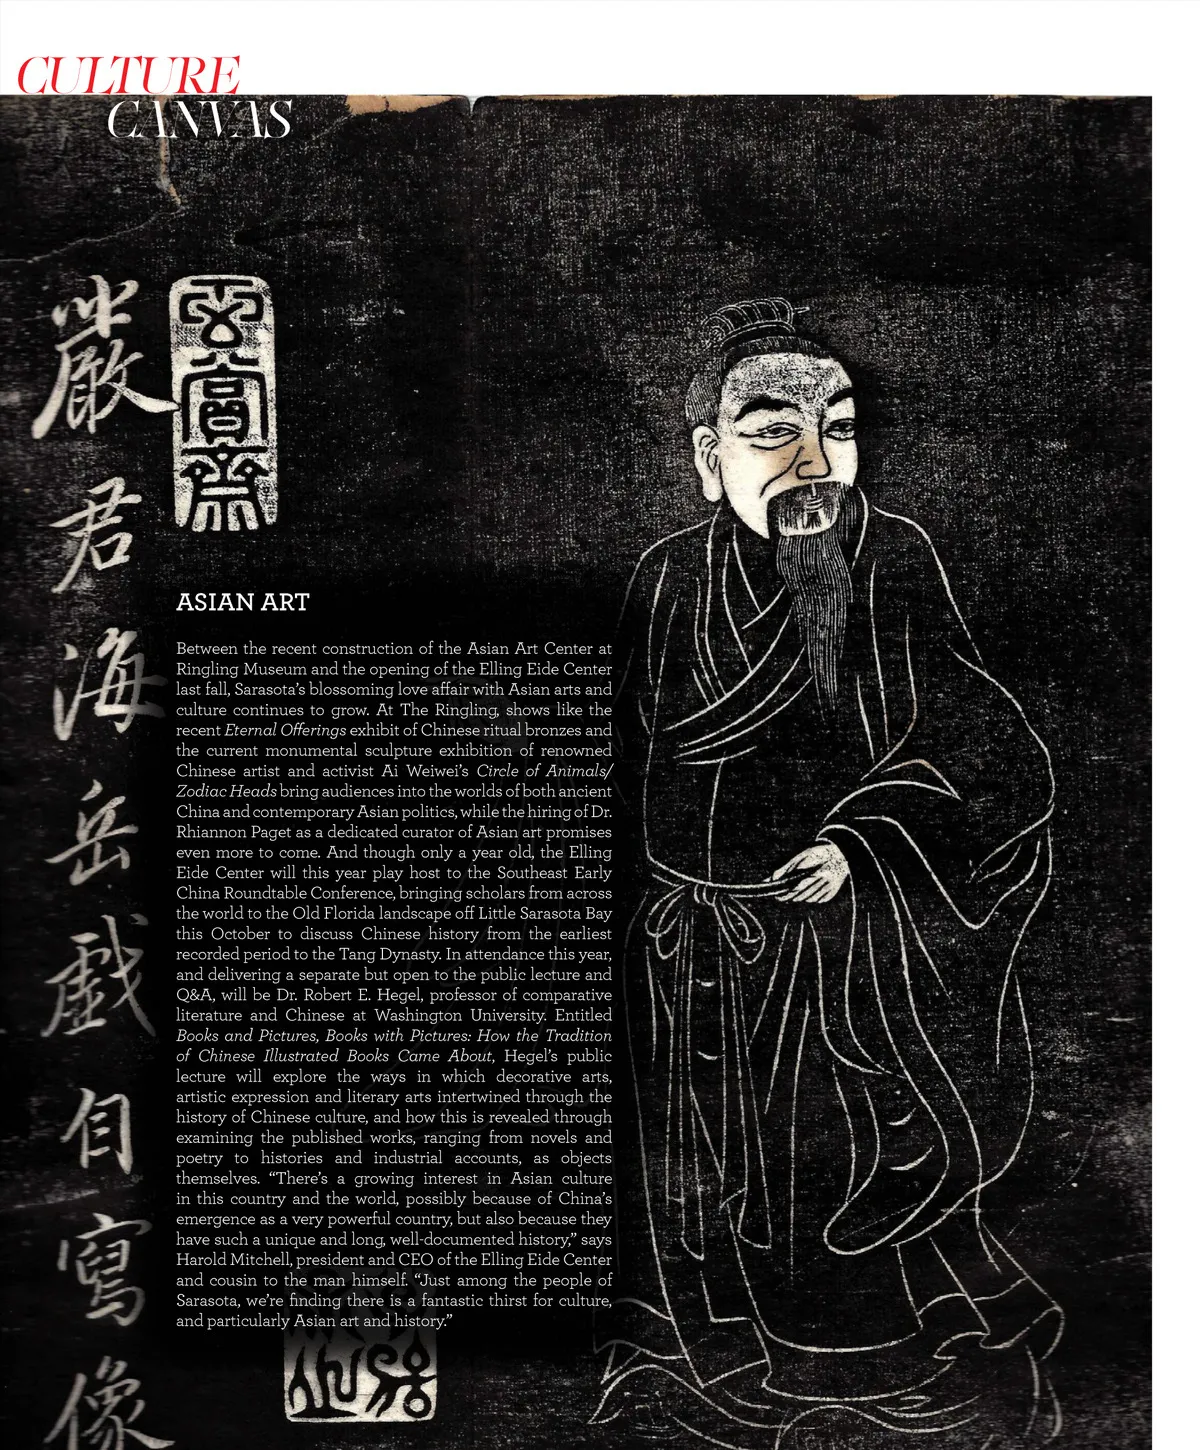 CULTURE
CANVAS
嚴君海岳戲自寫像
玄賞齋
ASIAN ART
Between the recent construction of the Asian Art Center at
Ringling Museum and the opening of the Elling Eide Center
last fall, Sarasota’s blossoming love affair with Asian arts and
culture continues to grow. At The Ringling, shows like the
recent Eternal Offerings exhibit of Chinese ritual bronzes and
the current monumental sculpture exhibition of renowned
Chinese artist and activist Ai Weiwei’s Circle of Animals/
Zodiac Heads bring audiences into the worlds of both ancient
China and contemporary Asian politics, while the hiring of Dr.
Rhiannon Paget as a dedicated curator of Asian art promises
even more to come. And though only a year old, the Elling
Eide Center will this year play host to the Southeast Early
China Roundtable Conference, bringing scholars from across
the world to the Old Florida landscape off Little Sarasota Bay
this October to discuss Chinese history from the earliest
recorded period to the Tang Dynasty. In attendance this year,
and delivering a separate but open to the public lecture and
Q&A, will be Dr. Robert E. Hegel, professor of comparative
literature and Chinese at Washington University. Entitled
Books and Pictures, Books with Pictures: How the Tradition
of Chinese Illustrated Books Came About, Hegel’s public
lecture will explore the ways in which decorative arts,
artistic expression and literary arts intertwined through the
history of Chinese culture, and how this is revealed through
examining the published works, ranging from novels and
poetry to histories and industrial accounts, as objects
themselves. “There’s a growing interest in Asian culture
in this country and the world, possibly because of China’s
emergence as a very powerful country, but also because they
have such a unique and long, well-documented history,” says
Harold Mitchell, president and CEO of the Elling Eide Center
and cousin to the man himself. “Just among the people of
Sarasota, we’re finding there is a fantastic thirst for culture,
and particularly Asian art and history.”